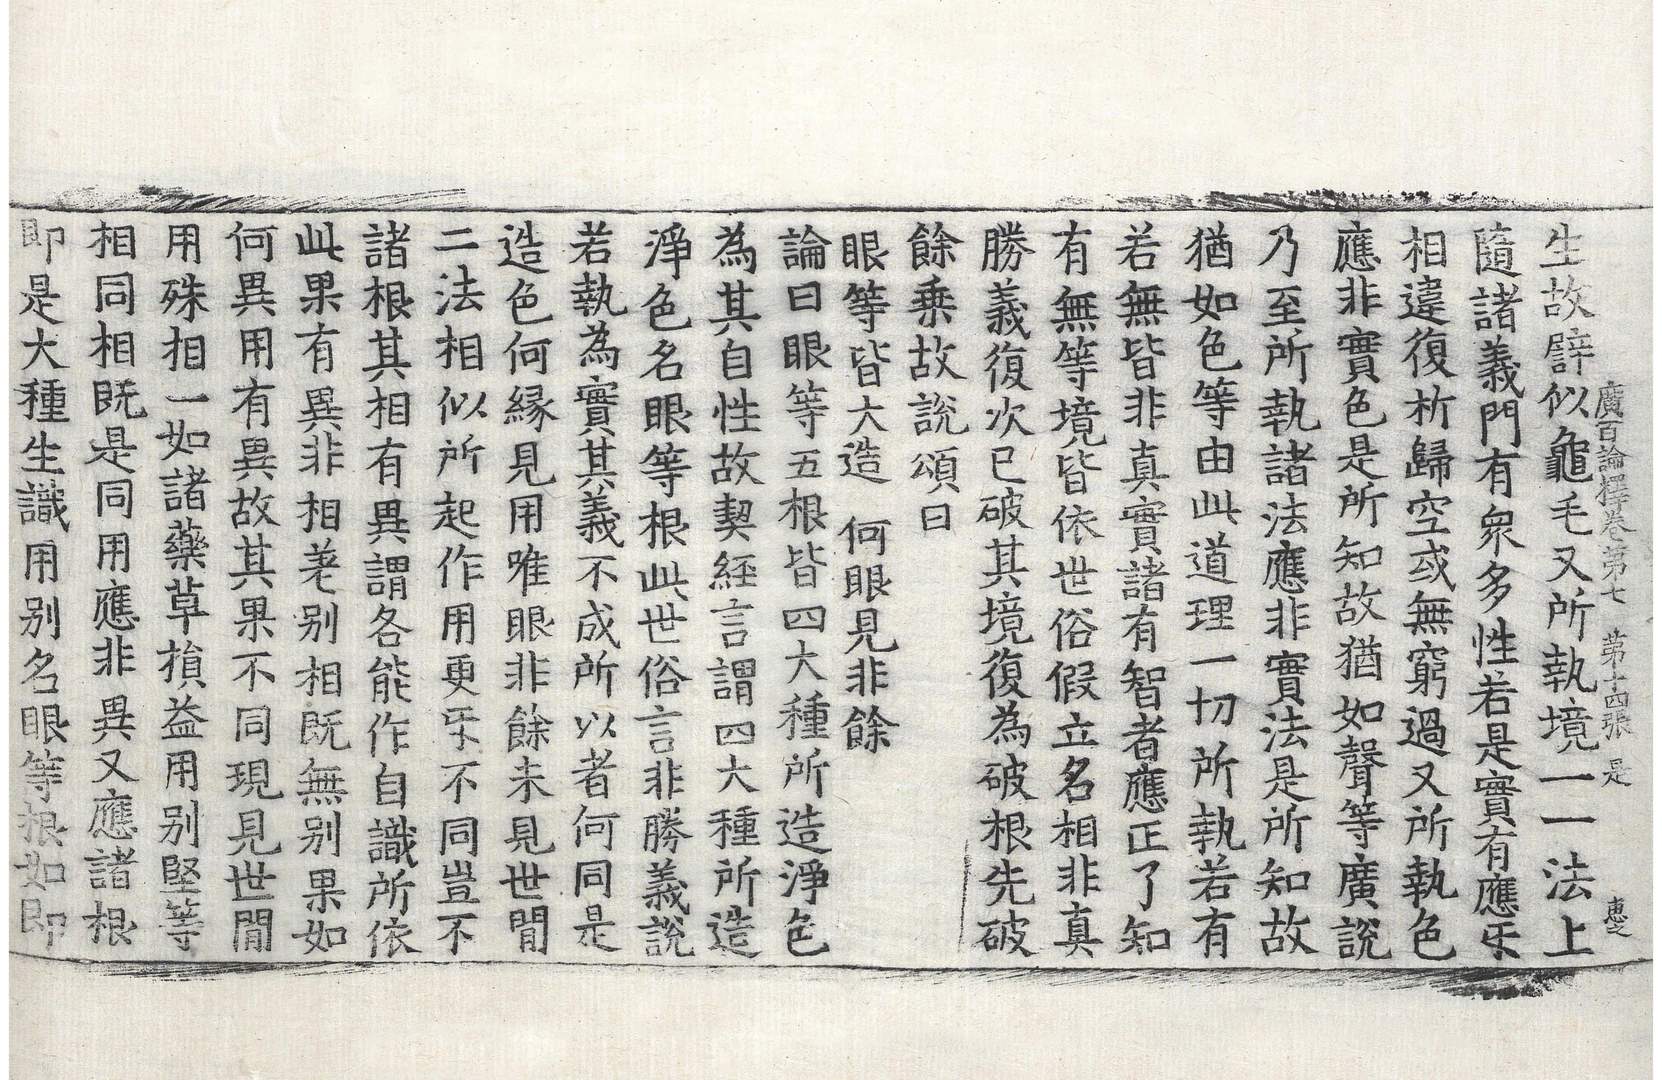 廣百論釋卷第七 第十四張 是 惠之
生故譬似龜毛又所執境一一法上
隨諸義門有衆多性若是實有應㸦
相違復析歸空或無窮過又所執色
應非實色是所知故猶如聲等廣說
乃至所執諸法應非實法是所知故
猶如色等由此道理一切所執若有
若無皆非真實諸有智者應正了知
有無等境皆依世俗假立名相非真
勝義復次已破其境復為破根先破
餘乘故說頌曰
眼等皆大造 何眼見非餘
論曰眼等五根皆四大種所造淨色
為其自性故契經言謂四大種所造
淨色名眼等根此世俗言非勝義說
若執為實其義不成所以者何同是
造色何緣見用唯眼非餘未見世間
二法相似所起作用更㸦不同豈不
諸根其相有異謂各能作自識所依
此果有異非相差别相既無别果如
何異用有異故其果不同現見世間
用殊相一如諸藥草損益用别堅等
相同相既是同用應非異又應諸根
即是大種生識用别名眼等根如即